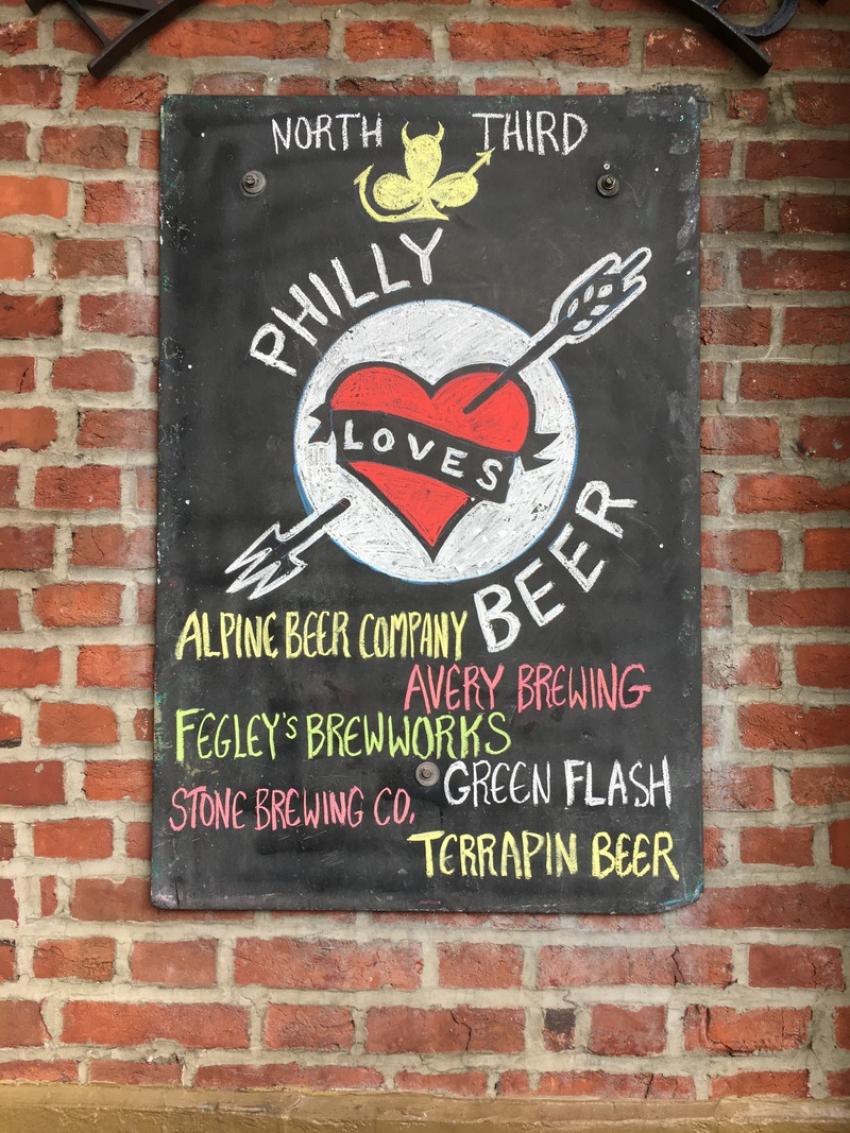 NORTH THIRD
PHILLY
LOVES
BEER
ALPINE BEER COMPANY
AVERY BREWING
FEGLEY'S BREWWORKS
GREEN FLASH
STONE BREWING CO.
TERRAPIN BEER